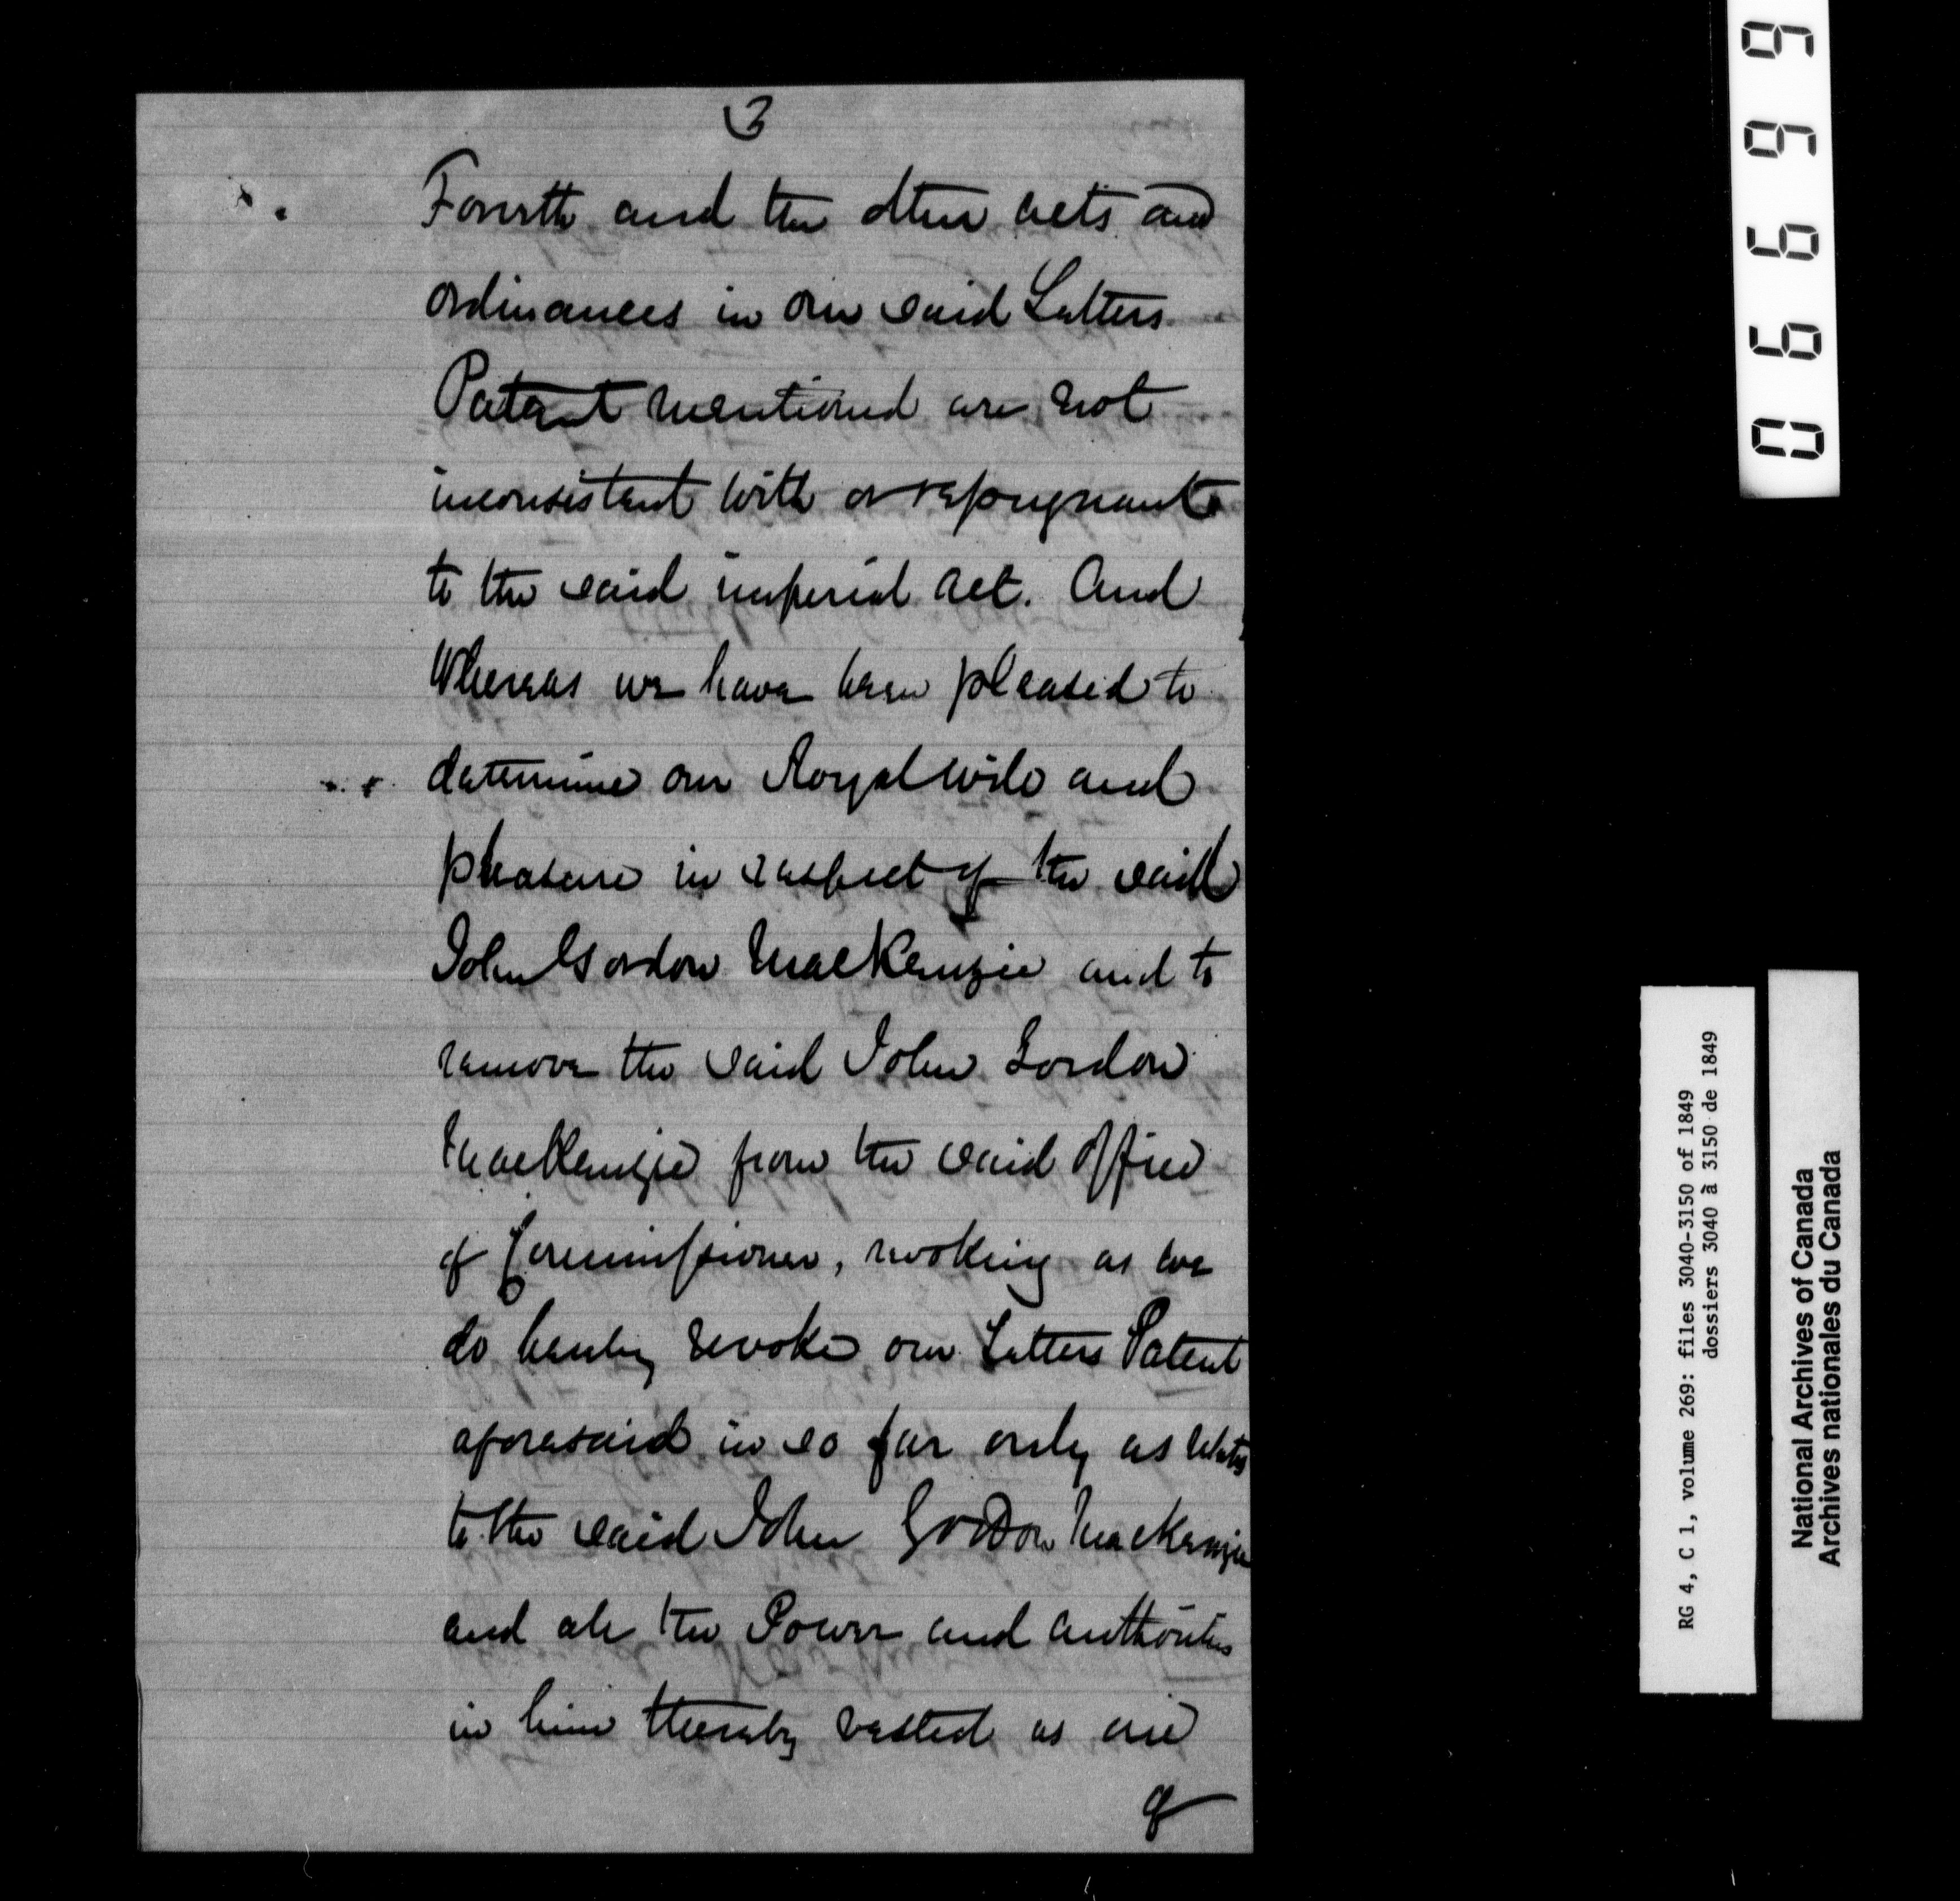 3
Fourth and the other acts and
ordinances in our said Letters
Patent mentioned are not
inconsistent with or repugnant
to the said imperial act. And
Whereas we have been pleased to
determine our Royal will and
pleasure in respect of the said
John Gordon MacKenzie and to
remove the said John Gordon
MacKenzie from the said office
of Commissioner, revoking as we
do hereby revoke our Letters Patent
aforesaid in so far only as relates
to the said John Gordon MacKenzie
and all the Power and authorities
in him thereby vested as one
of
06699
RG 4, C 1, volume 269: files 3040-3150 of 1849
dossiers 3040 à 3150 de 1849
National Archives of Canada
Archives nationales du Canada